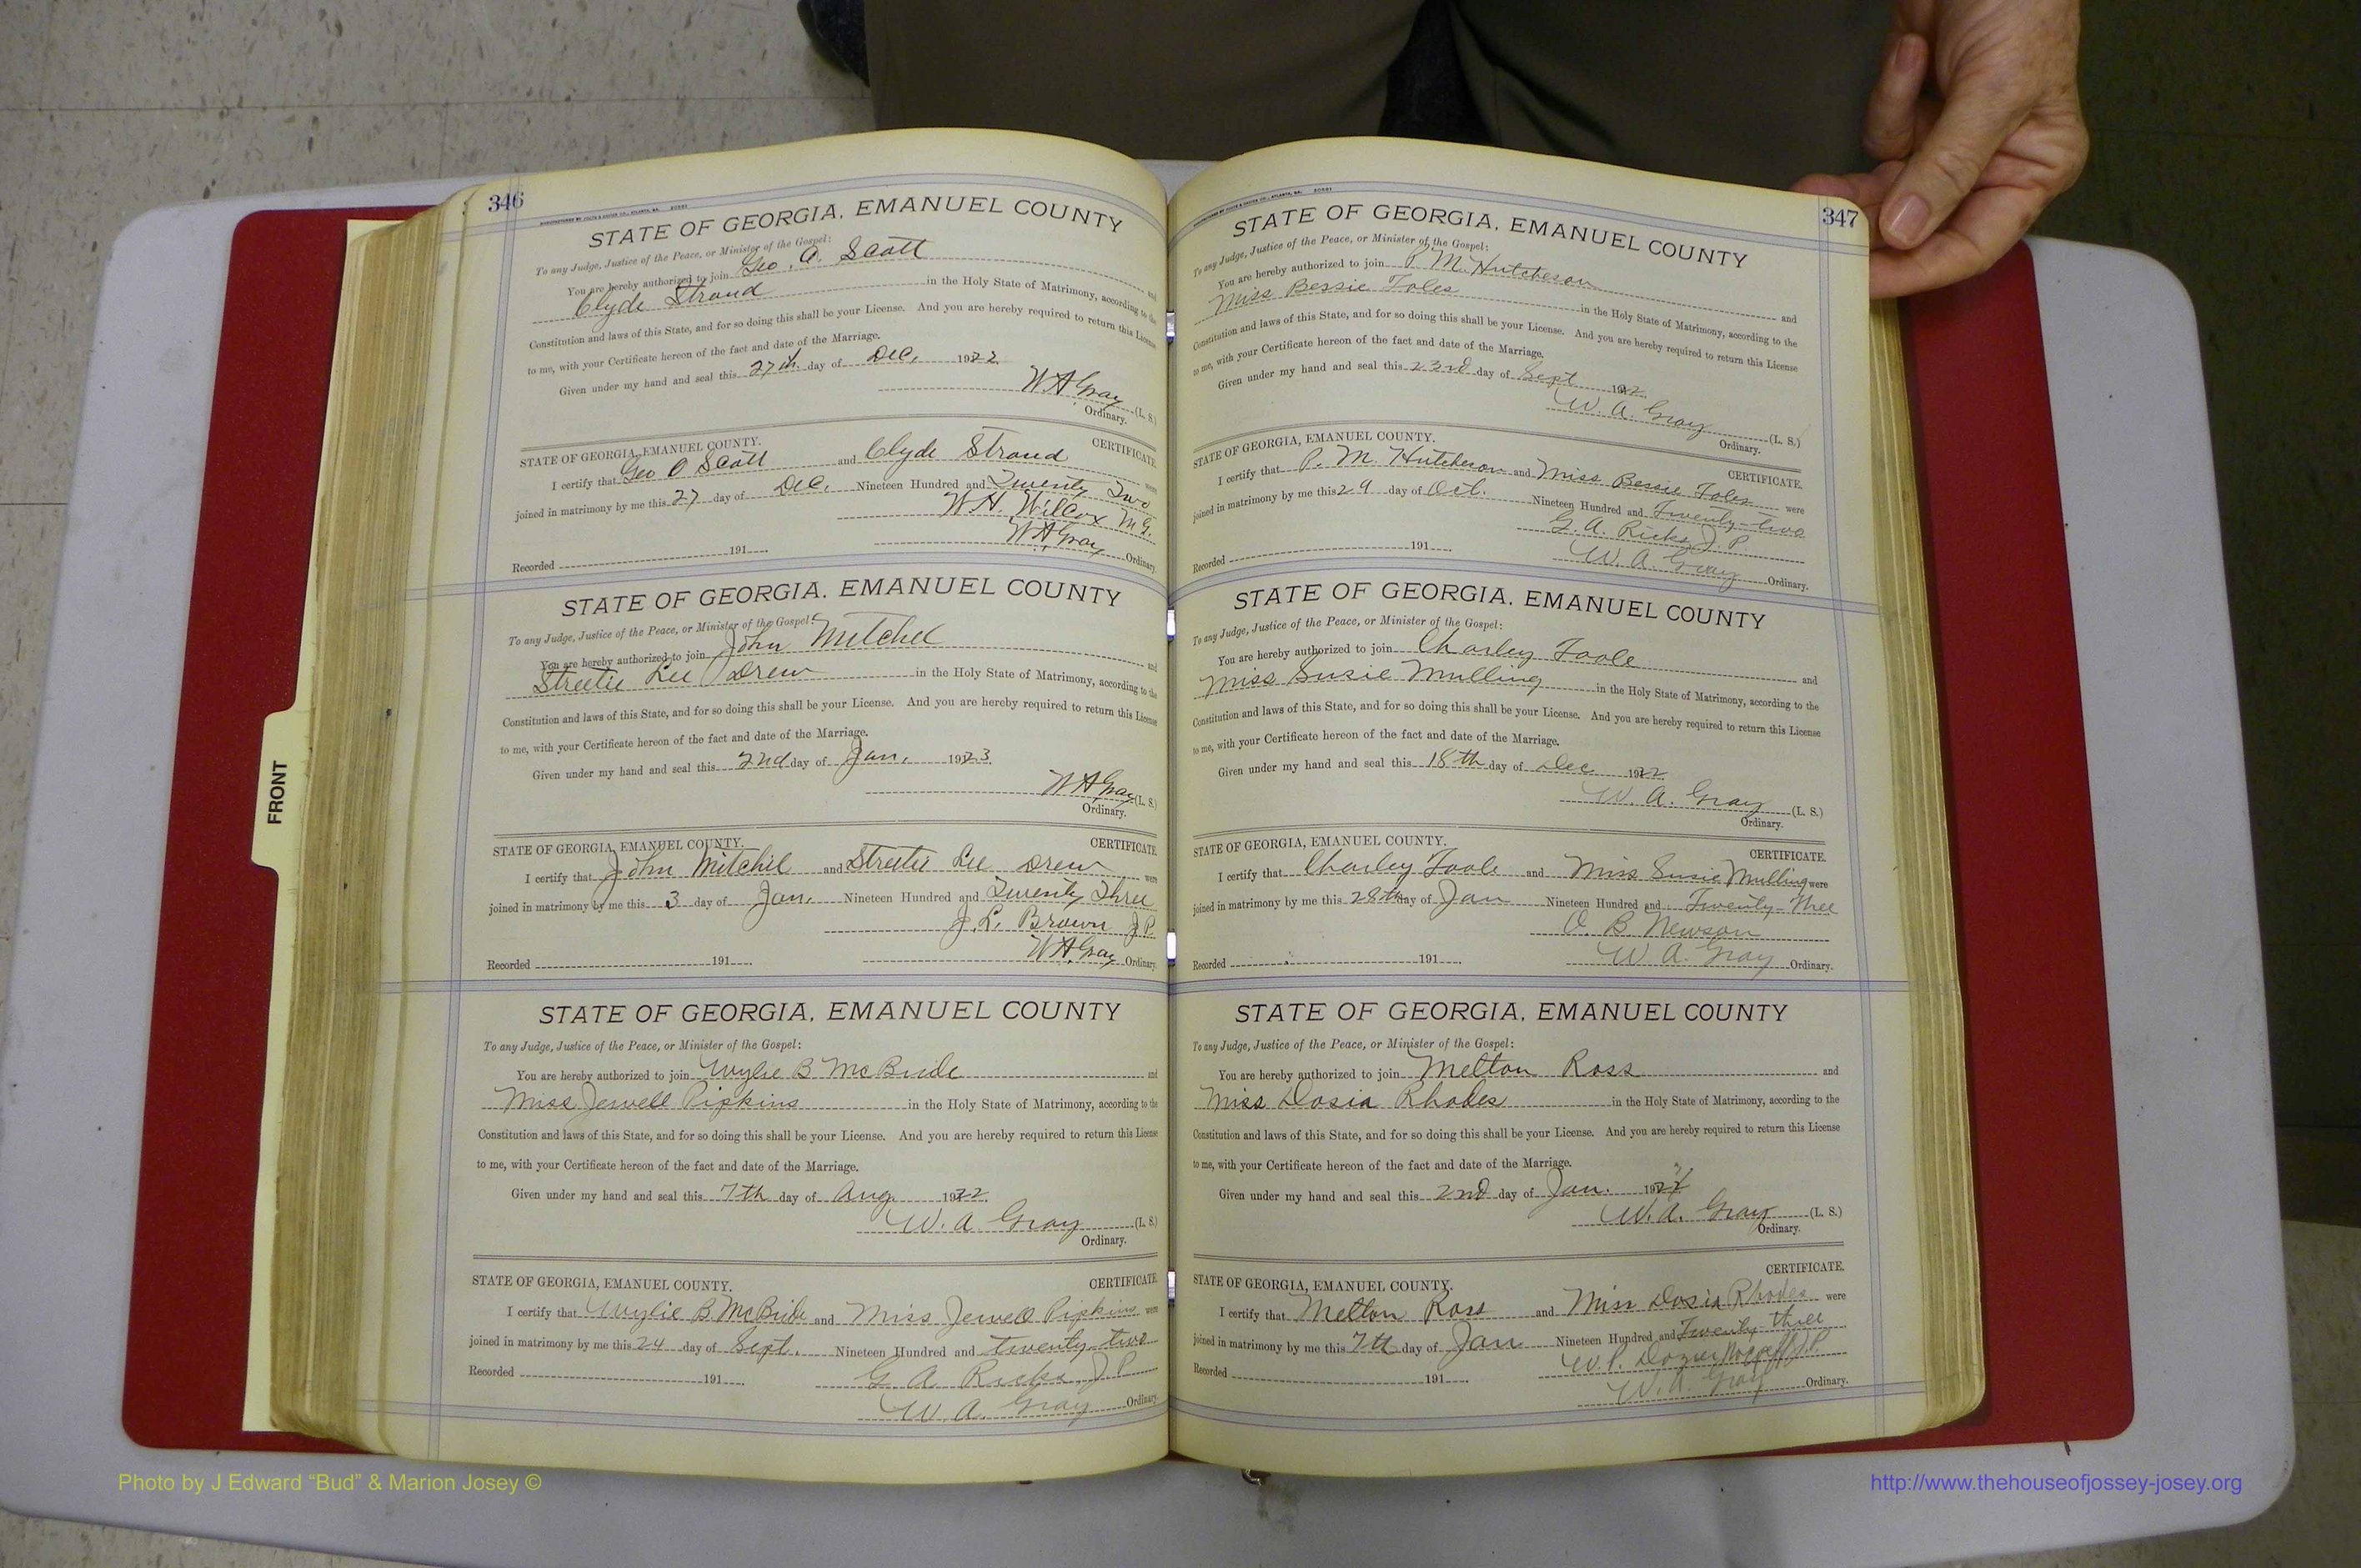 346
STATE OF GEORGIA, EMANUEL COUNTY
To any Judge, Justice of the Peace, or Minister of the Gospel:
You are hereby authorized to join Geo. A. Scott and
Clyde Stroud in the Holy State of Matrimony, according to the
Constitution and laws of this State, and for so doing this shall be your License. And you are hereby required to return this License
to me, with your Certificate hereon of the fact and date of the Marriage.
Given under my hand and seal this 27th day of Dec, 1922
W A Gray (L. S.)
Ordinary.
STATE OF GEORGIA, EMANUEL COUNTY. CERTIFICATE
I certify that Geo O Scott and Clyde Stroud were
joined in matrimony by me this 27 day of Dec, Nineteen Hundred and Twenty Two
W. H. Wilcox M G.
W A Gray
Recorded 191 Ordinary
STATE OF GEORGIA, EMANUEL COUNTY
To any Judge, Justice of the Peace, or Minister of the Gospel:
You are hereby authorized to join John Mitchel and
Streetie Lee Drew in the Holy State of Matrimony, according to the
Constitution and laws of this State, and for so doing this shall be your License. And you are hereby required to return this License
to me, with your Certificate hereon of the fact and date of the Marriage.
Given under my hand and seal this 2nd day of Jan, 1923
W A Gray (L. S.)
Ordinary.
STATE OF GEORGIA, EMANUEL COUNTY. CERTIFICATE
I certify that John Mitchil and Streetie Lee Drew were
joined in matrimony by me this 3 day of Jan, Nineteen Hundred and Twenty Three
J. L. Brown J. P.
W A Gray
Recorded 191 Ordinary
STATE OF GEORGIA, EMANUEL COUNTY
To any Judge, Justice of the Peace, or Minister of the Gospel:
You are hereby authorized to join Wylie B McBride and
Miss Jewell Pipkins in the Holy State of Matrimony, according to the
Constitution and laws of this State, and for so doing this shall be your License. And you are hereby required to return this License
to me, with your Certificate hereon of the fact and date of the Marriage.
Given under my hand and seal this 7th day of Aug 1922.
W. A Gray (L. S.)
Ordinary.
STATE OF GEORGIA, EMANUEL COUNTY. CERTIFICATE
I certify that Wylie B McBride and Miss Jewell Pipkins were
joined in matrimony by me this 24 day of Sept. Nineteen Hundred and twenty-two
Recorded 191 G A Ricks J. P.
W. A. Gray Ordinary
347
STATE OF GEORGIA, EMANUEL COUNTY
To any Judge, Justice of the Peace, or Minister of the Gospel:
You are hereby authorized to join P M. Hutcheson
Miss Bessie Toles in the Holy State of Matrimony, according to the and
Constitution and laws of this State, and for so doing this shall be your License. And you are hereby required to return this License
to me, with your Certificate hereon of the fact and date of the Marriage.
Given under my hand and seal this 23rd day of Sept 1922.
W. A. Gray (L. S.)
Ordinary.
STATE OF GEORGIA, EMANUEL COUNTY. CERTIFICATE.
I certify that P. M. Hutcheson and Miss Bessie Toles were
joined in matrimony by me this 29 day of Oct. Nineteen Hundred and Twenty-two
G. A. Ricks J. P.
Recorded 191 W. A. Gray Ordinary.
STATE OF GEORGIA, EMANUEL COUNTY
To any Judge, Justice of the Peace, or Minister of the Gospel:
You are hereby authorized to join Charley Toole and
Miss Susie Mulling in the Holy State of Matrimony, according to the
Constitution and laws of this State, and for so doing this shall be your License. And you are hereby required to return this License
to me, with your Certificate hereon of the fact and date of the Marriage.
Given under my hand and seal this 18th day of Dec 1922
W. A. Gray (L. S.)
Ordinary.
STATE OF GEORGIA, EMANUEL COUNTY. CERTIFICATE.
I certify that Charley Toole and Miss Susie Mulling were
joined in matrimony by me this 28th day of Jan Nineteen Hundred and Twenty-Three
O. B Newson
Recorded 191 W A. Gray Ordinary.
STATE OF GEORGIA, EMANUEL COUNTY
To any Judge, Justice of the Peace, or Minister of the Gospel:
You are hereby authorized to join Melton Ross and
Miss Dosia Rhodes in the Holy State of Matrimony, according to the
Constitution and laws of this State, and for so doing this shall be your License. And you are hereby required to return this License
to me, with your Certificate hereon of the fact and date of the Marriage.
Given under my hand and seal this 2nd day of Jan. 192
W. A. Gray (L. S.)
Ordinary.
STATE OF GEORGIA, EMANUEL COUNTY. CERTIFICATE.
I certify that Melton Ross and Miss Dosia Rhodes were
joined in matrimony by me this 7th day of Jan Nineteen Hundred and Twenty-three
Recorded 191 W. P. Dozier J.P.
W. A. Gray Ordinary.
FRONT
Photo by J Edward “Bud” & Marion Josey ©
http://www.thehouseofjossey-josey.org